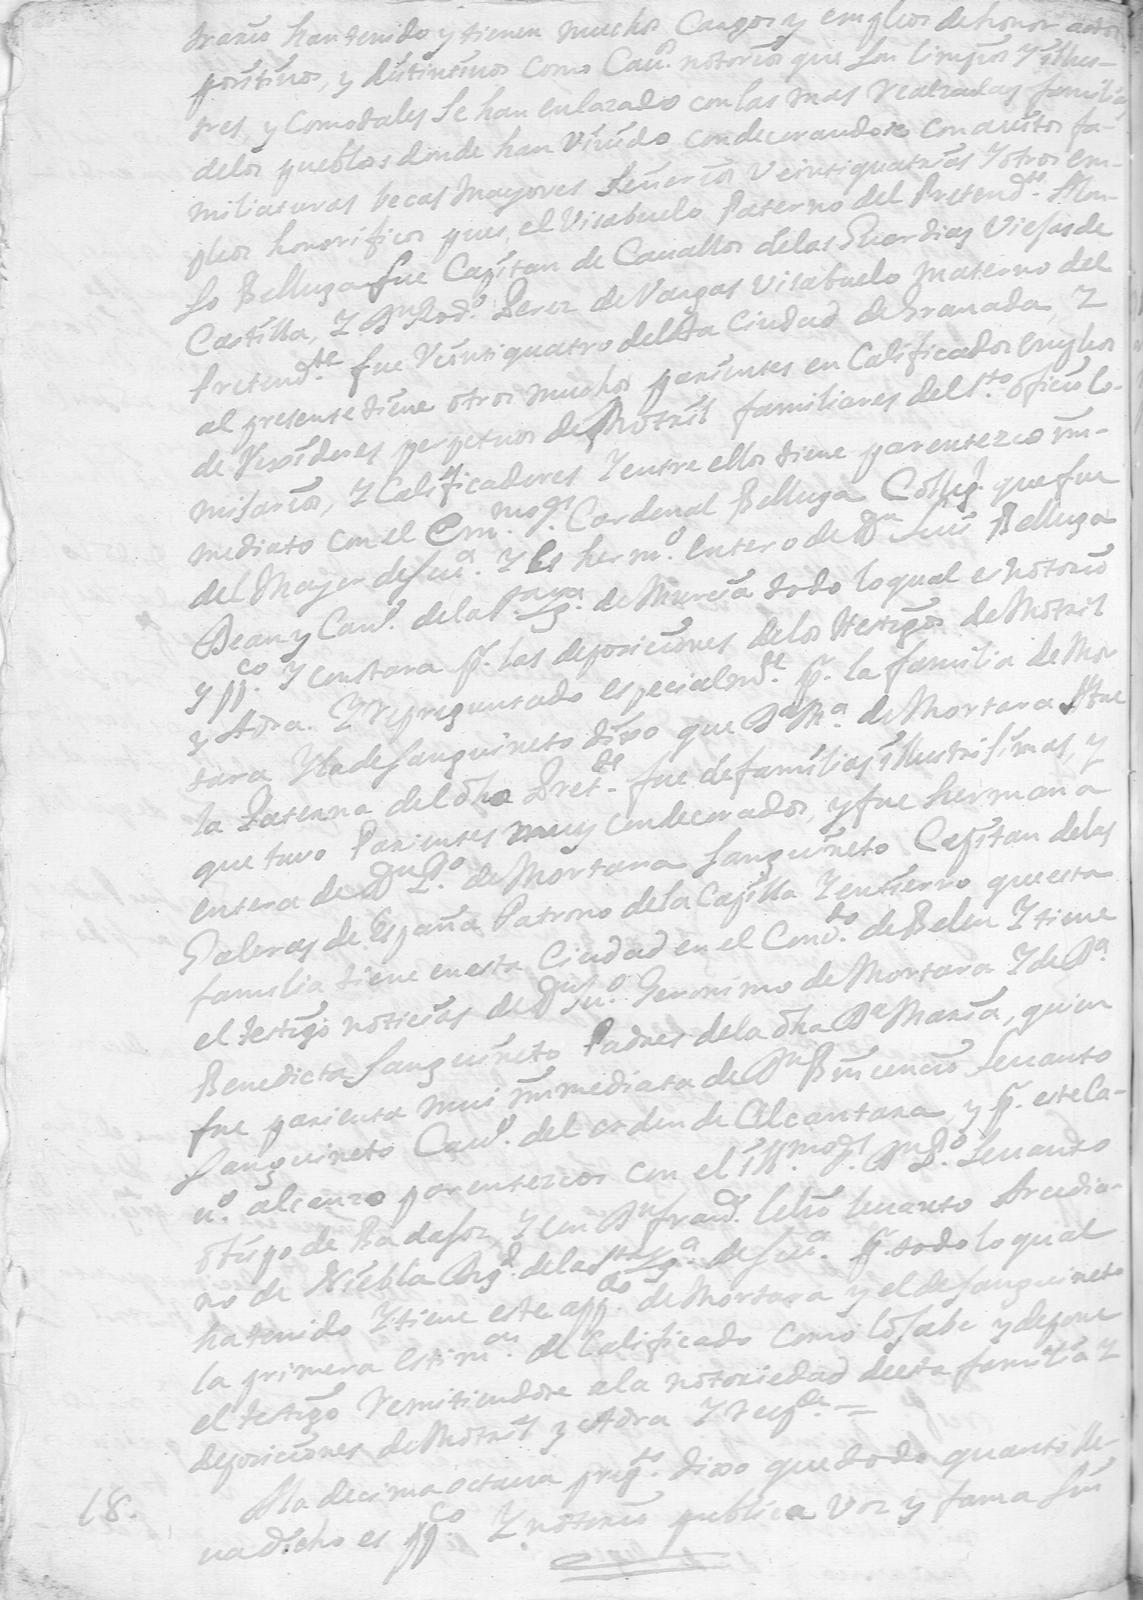 trario han tenido y tienen muchos Cargos y empleos de honor actos
positivos, y distintivos como Cauº. notorios que son limpios Y illus-
tres, y como tales se han enlazado con las mas realzadas familias
delos pueblos donde han Viuido condecorandose con auitos fa-
miliaturas becas mayores Veintiquatrias Y otros em-
pleos honorificos pues, el Visabuelo Paterno del Pretendte. Alon-
so Belluga fue Capitan de Cauallos delas Guardias Viejas de
Castilla, Y Dn Rodº. Perez de Vargas Visabuelo materno del
Pretendte. fue Veintiquatro de la Ciudad de Granada, Y
al presente tiene otros muchos parientes en Calificados empleos
de Rexidores perpetuos de Motril familiares del Sto. oficio Co-
misarios, Y Calificadores Y entre ellos tiene parentezco im-
mediato con el Emmo. Sr. Cardenal Belluga Colleg. que fue
del Mayor de Cuca. Y Es hermº. entero de Dn Luis Belluga
Dean y Canº. de la Sta Yga. de Murcia todo lo qual es notorio
y ppco. Y constara pr. las deposiciones delos testigos de Motril
y Adra. Y repreguntado especialmte. pr. la familia de Mor
tara Y la de Sanguineto dixo que Da Ma. de Mortara Abue
la Paterna del dho Prette. fue de familias illustrisimas, y
que tuvo Parientes muy condecorados, y fue hermana
entera de Dn Pº. de Mortara Sanguineto Capitan delas
Galeras de España Patrono de la Capilla Y entierro que esta
familia tiene en esta Ciudad en el Convto. de Belen Y tiene
el testigo noticias de Dn Juº. Geronimo de Mortara Y de Da
Benedicta Sanguineto Padres de la dha Da Maria, quien
fue parienta mui immediata de Dn Vincencio Leuanto
Sanguineto Cauº. del orden de Alcantara, y pr. este Ca-
uº. alcanzo parentezcos con el Illmo. Sr. Dn Pº Leuanto
obispo de Badajoz, Y con Dn Francº. Lelio leuanto Arcedia-
no de Niebla Digd. de la Sta Yga. de Seua. pr. todo lo qual
ha tenido Y tiene este appdo. de Mortara y el de Sanguineto
la primera Estimon. de Calificado como lo sabe y depone
el testigo remitiendose a la notoriedad de esta familia Y
deposiciones de Motril y Adra Y respde. =
18. A la decima octava pregta. dixo que todo quanto lle-
ua dicho es ppco. Y notorio publica voz y fama sin